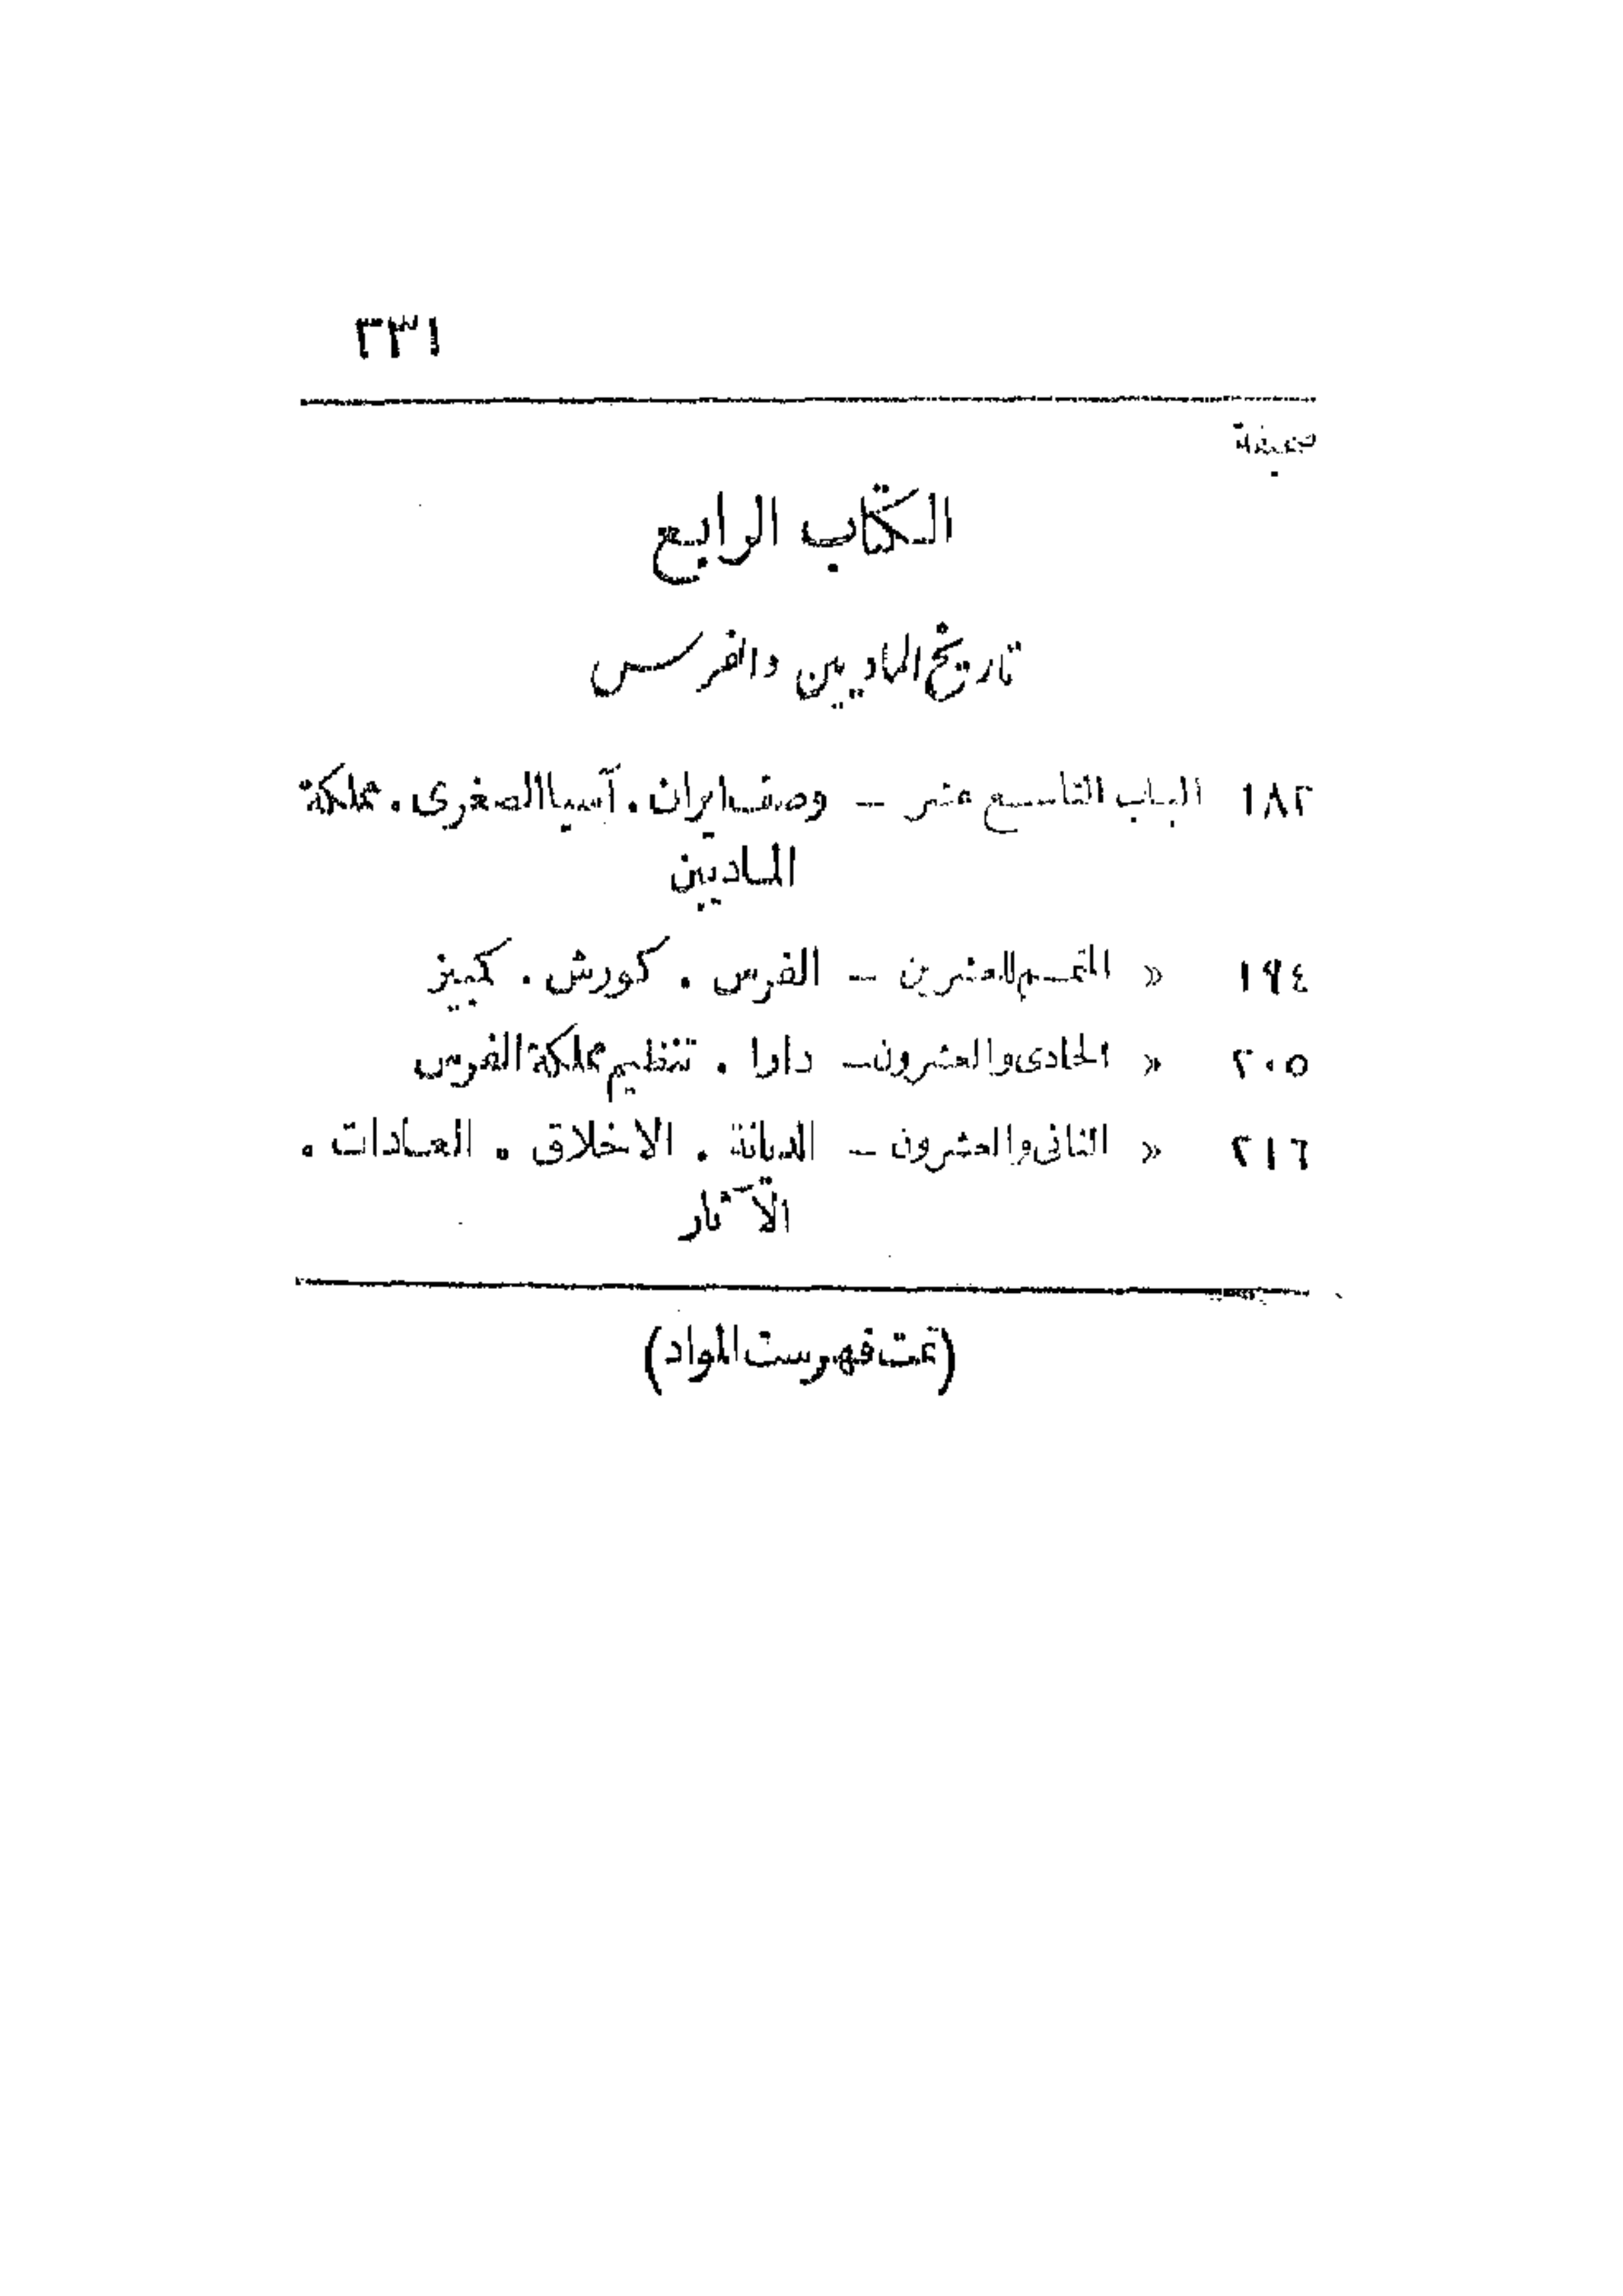 ٢٣١
صحيفة
الكتاب الرابع
تاريخ الماديين والفرس
١٨٢ الباب التاسع عشر — وصف ايران . آسيا الصغرى . مملكة
الماديين
١٩٤ « المتمم للعشرين — الفرس . كورش . كمبيز
٢٠٥ « الحادى والعشرون — دارا . تنظيم مملكة الفرس
٢١٦ « الثانى والعشرون — الديانة . الاخلاق . العادات .
الآثار
(تمت فهرست المواد)